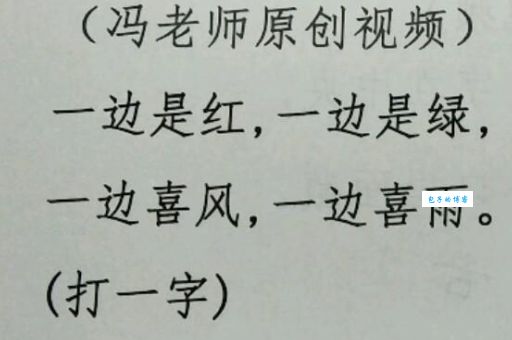 （冯老师原创视频）
一边是红，一边是绿，
一边喜风，一边喜雨。
包子的博客
(打一字)